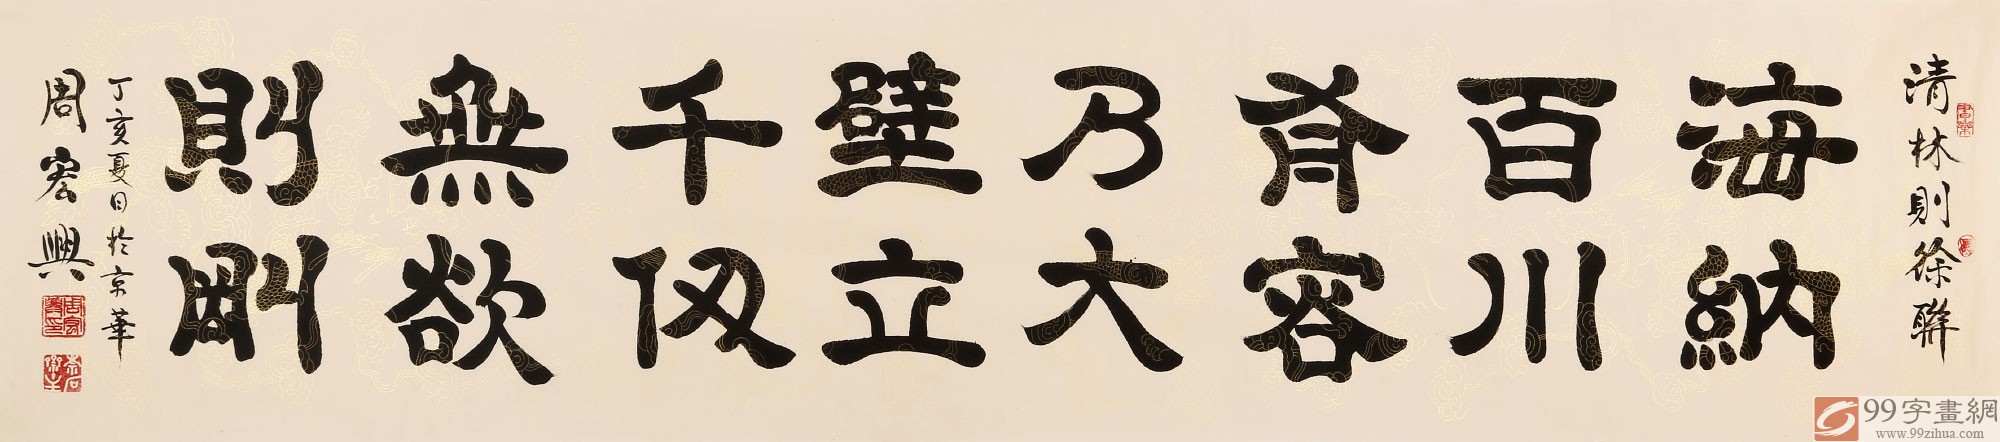 清林則徐聯
海納
百川
有容
乃大
壁立
千仞
無欲
則剛
丁亥夏日於京華
周宏興
99字畫網
www.99zihua.com